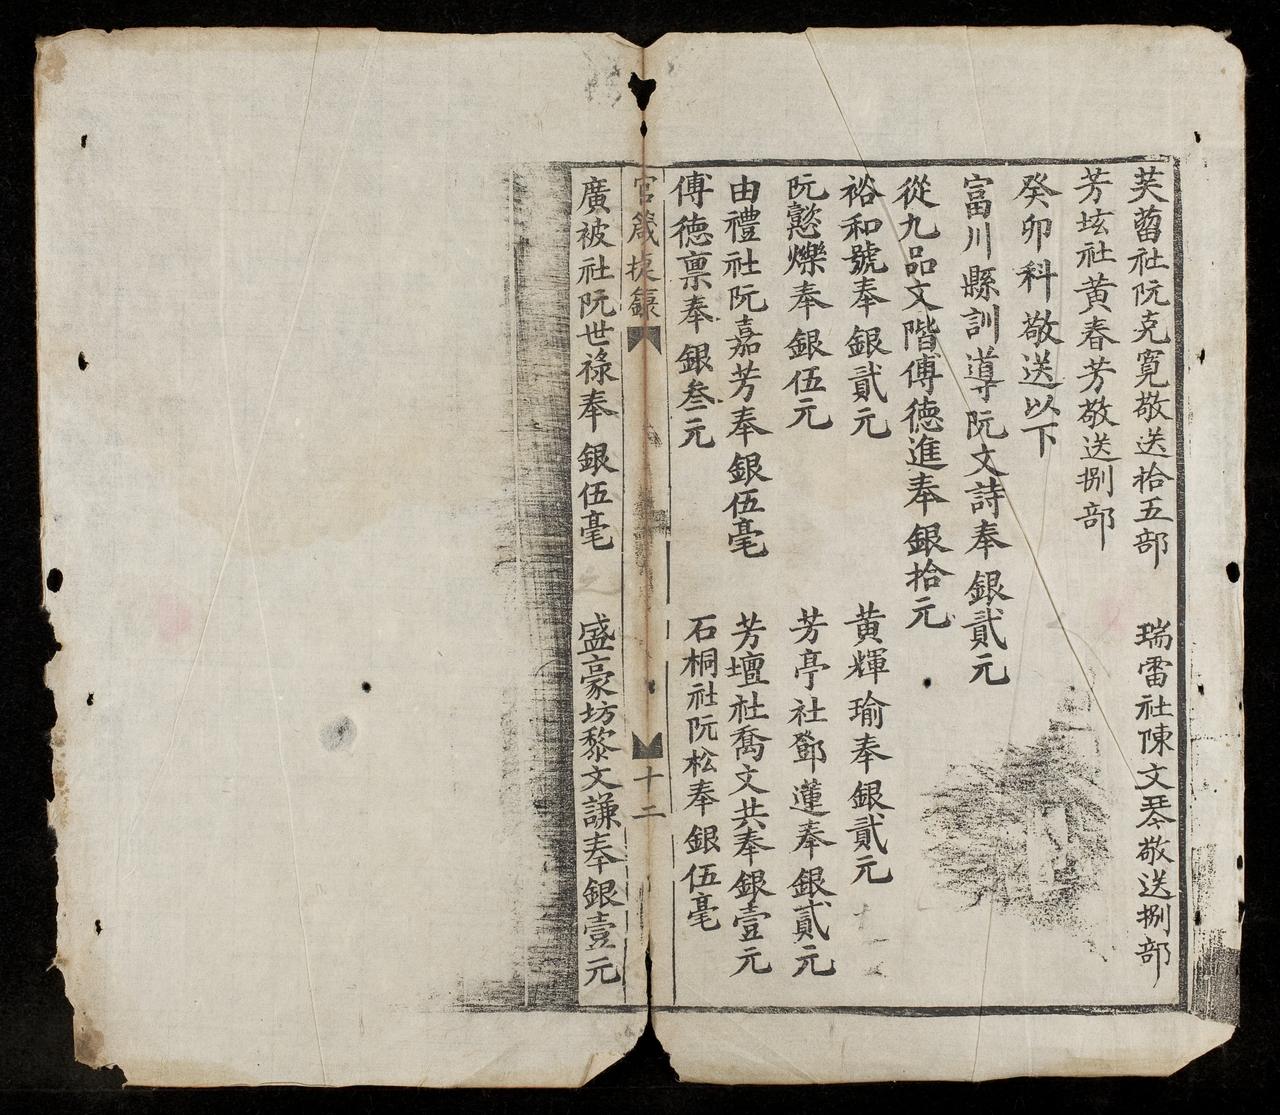 芙蒥社阮克寬敬送拾五部　瑞雷社陳文琴敬送捌部
芳垓社黄春芳敬送捌部
癸卯科敬送以下
富川縣訓導阮文詩奉銀貳元
從九品文階傅德進奉銀拾元
裕和號奉銀貳元　黄輝瑜奉銀貳元
阮懿爍奉銀伍元　芳亭社鄧蓮奉銀貳元
由禮社阮嘉芳奉銀伍毫　芳壇社喬文共奉銀壹元
傅徳禀奉銀叁元　石桐社阮松奉銀伍毫
官箴捷錄　十二
廣被社阮世祿奉銀伍毫　盛豪坊黎文謙奉銀壹元